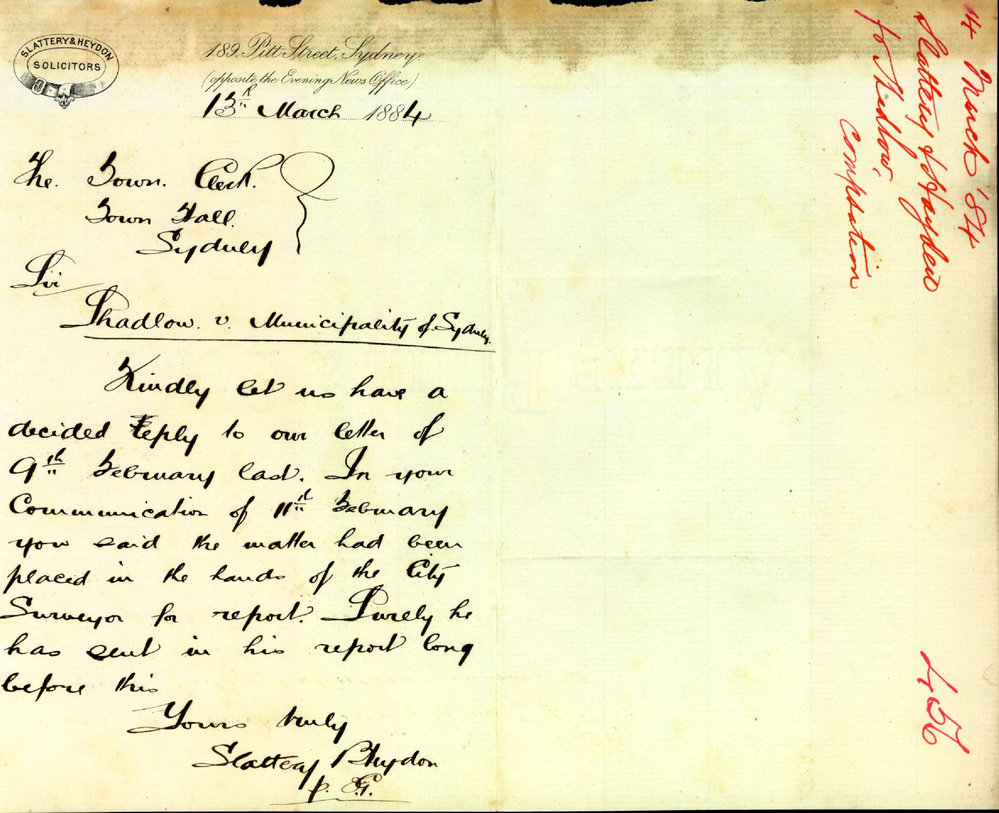 SLATTERY & HEYDON
SOLICITORS
189. Pitt Street, Sydney.
(opposite the Evening News Office)
13th March 1884
The Town Clerk.
Town Hall
Sydney
Sir
Shadlow. v. Municipality of Sydney.
Kindly let us have a
decided reply to our letter of
9th February last. In your
Communication of 11th February
you said the matter had been
placed in the hands of the City
Surveyor for report. Surely he
has sent in his report long
before this
Yours truly
Slattery & Heydon
p.
14 March '84
Slattery & Hayden
for Shadlow,
compsation
56